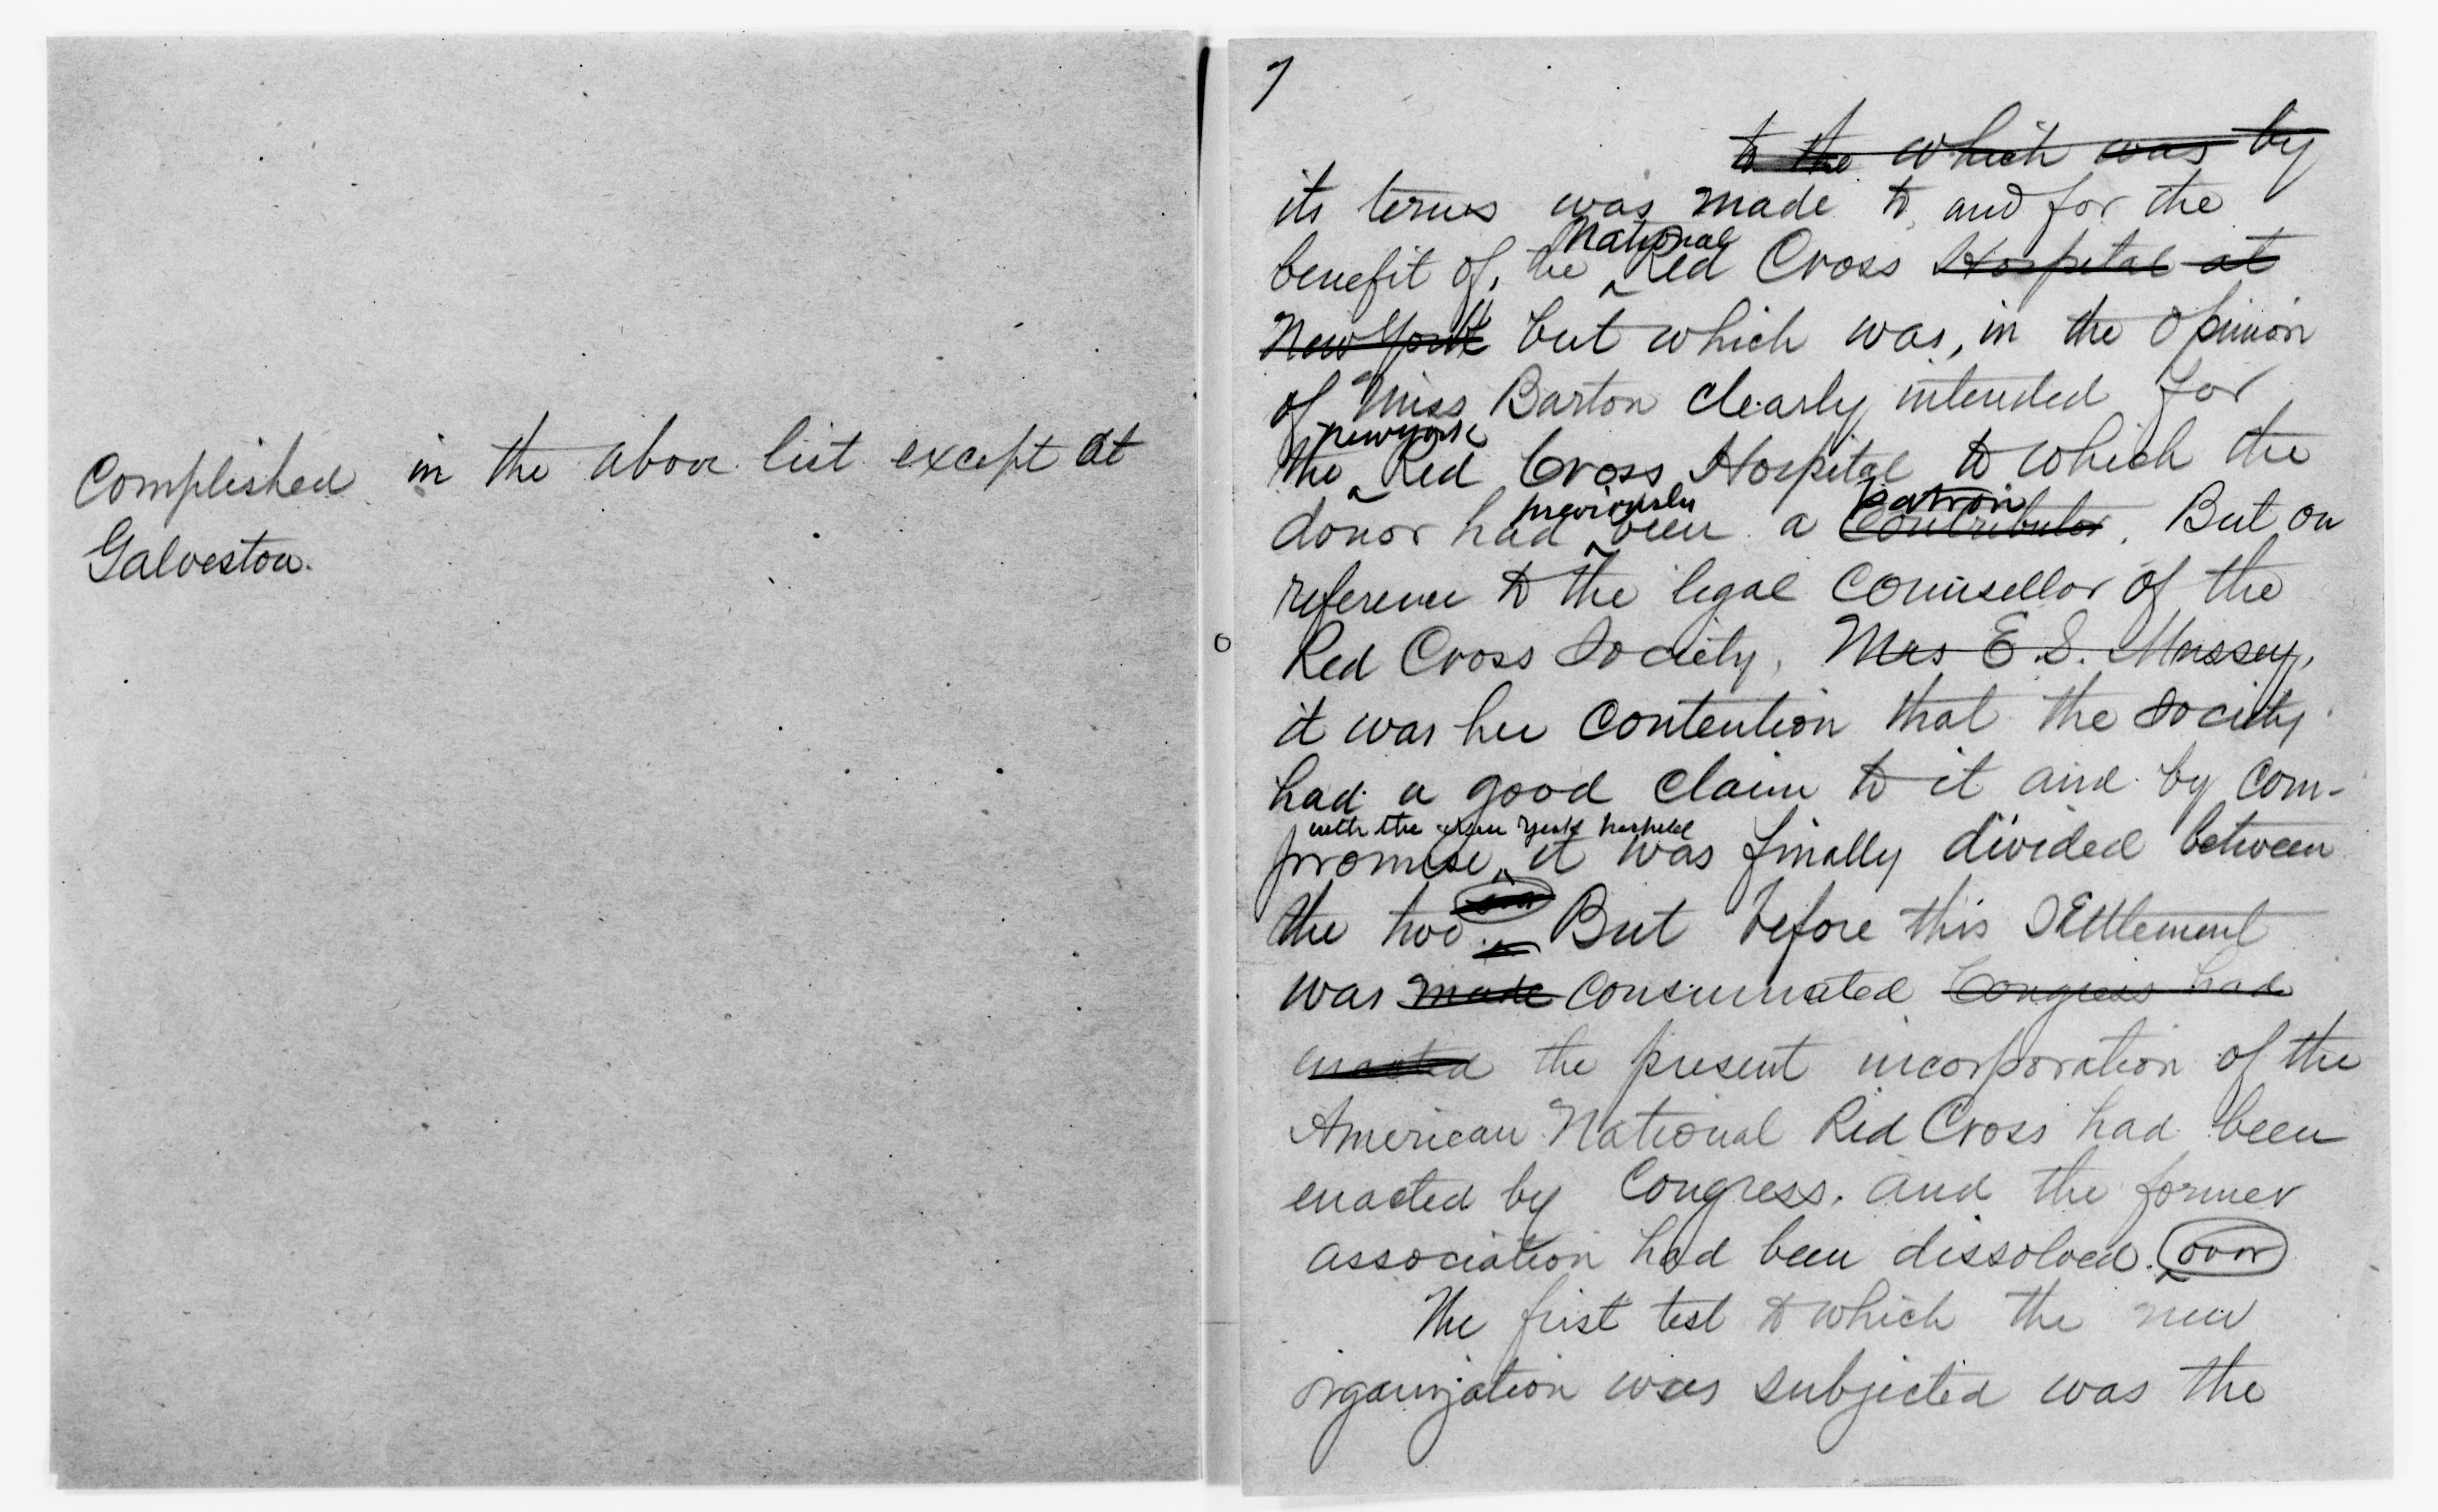 Complished in the above list except at
Galveston.
7
to the which was by
its terms was made to, and for the
National
benefit of, the Red Cross Hospital at
New York but which was, in the opinion
of Miss Barton clearly intended for
New York
the Red Cross Hospital to which the
previously patron
donor had been a Contributor. But on
reference to the legal Counsellor of the
Red Cross Society, Mrs E. S. Mussey,
it was her contention that the Society
had a good claim to it and by com-
with the New York hospital
promise, it was finally divided between
over
the two. But before this settlement
was made consummated Congress had
enacted the present incorporation of the
American National Red Cross had been
enacted by Congress. and the former
association had been dissolved. over
The first test to which the new
organization was subjected was the